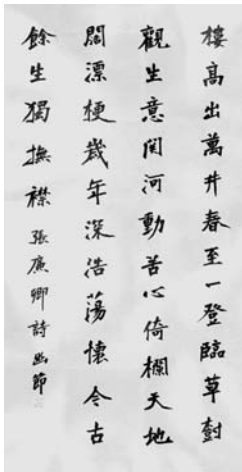 樓高出萬井春至一登臨草樹
觀生意関河動苦心倚欄天地
闊漂梗歲年深浩蕩懷今古
餘生獨撫襟 張廉卿詩幽節